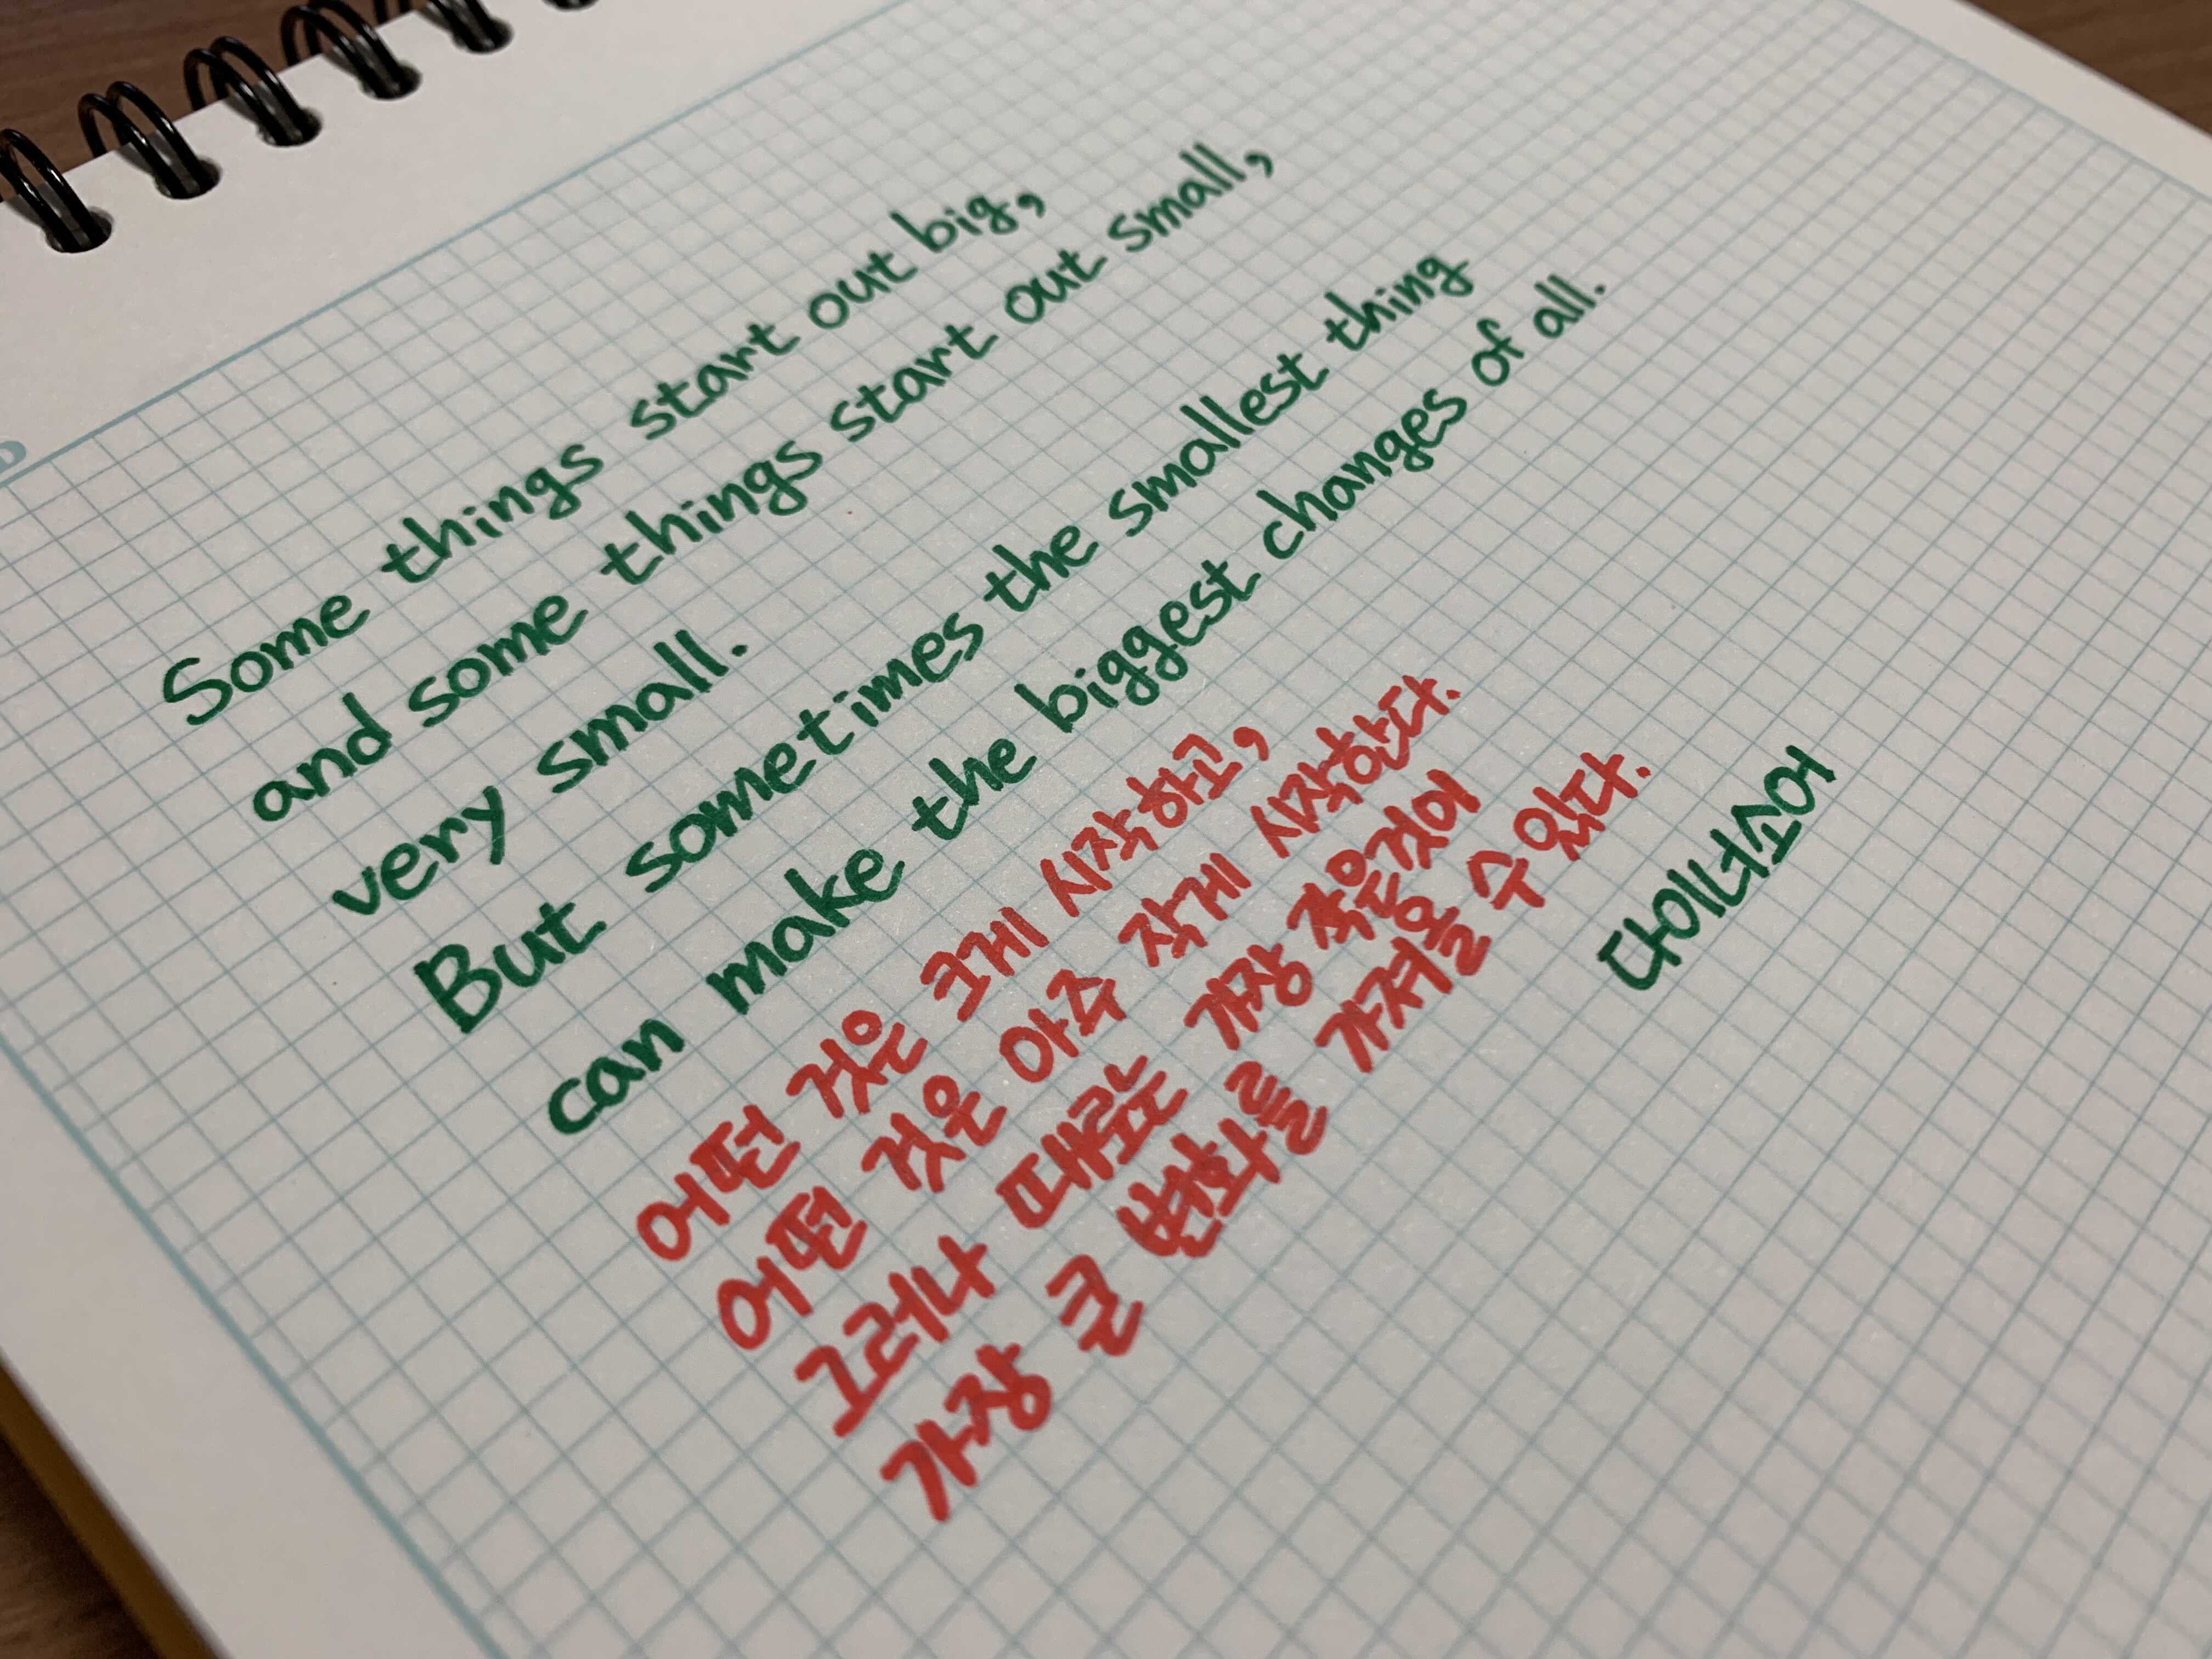 Some things start out big,
and some things start out small,
very small.
But sometimes the smallest thing
can make the biggest changes of all.
어떤 것은 크게 시작하고,
어떤 것은 아주 작게 시작한다.
그러나 때로는 가장 작은것이
가장 큰 변화를 가져올 수 있다.
다이너소어